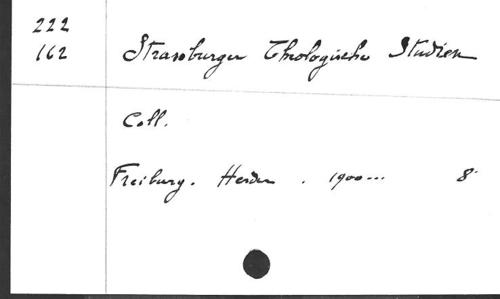 222
162 Strassburger Theologische Studien
Coll.
Freiburg. Herder. 1900... 8°